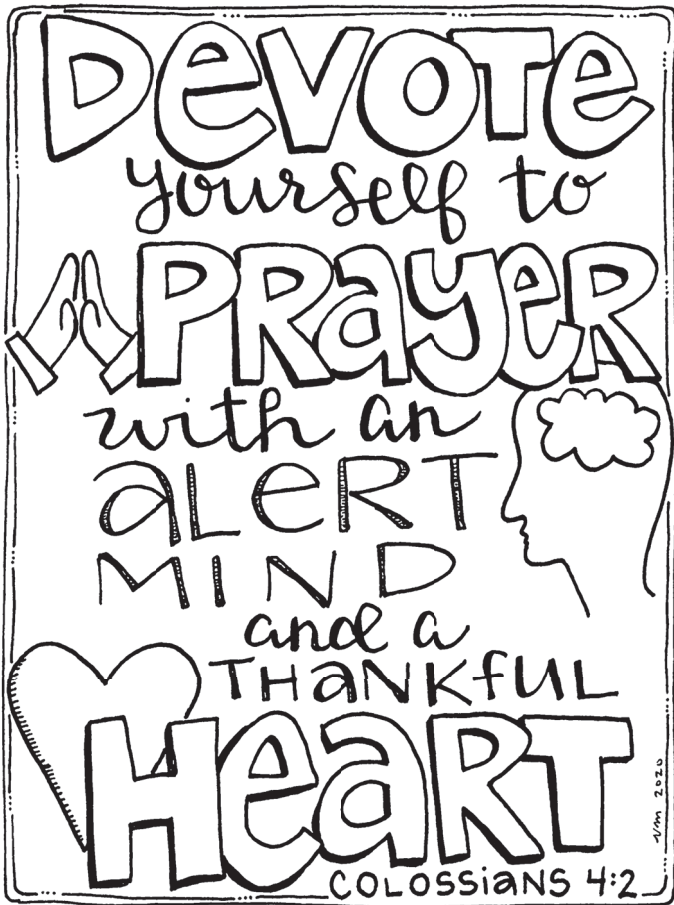 Devote
yourself to
PRayeR
with an
aLeRT
MIND
and a
THaNKfUL
HeaRT
COLOSSiaNS 4:2
vm 2020